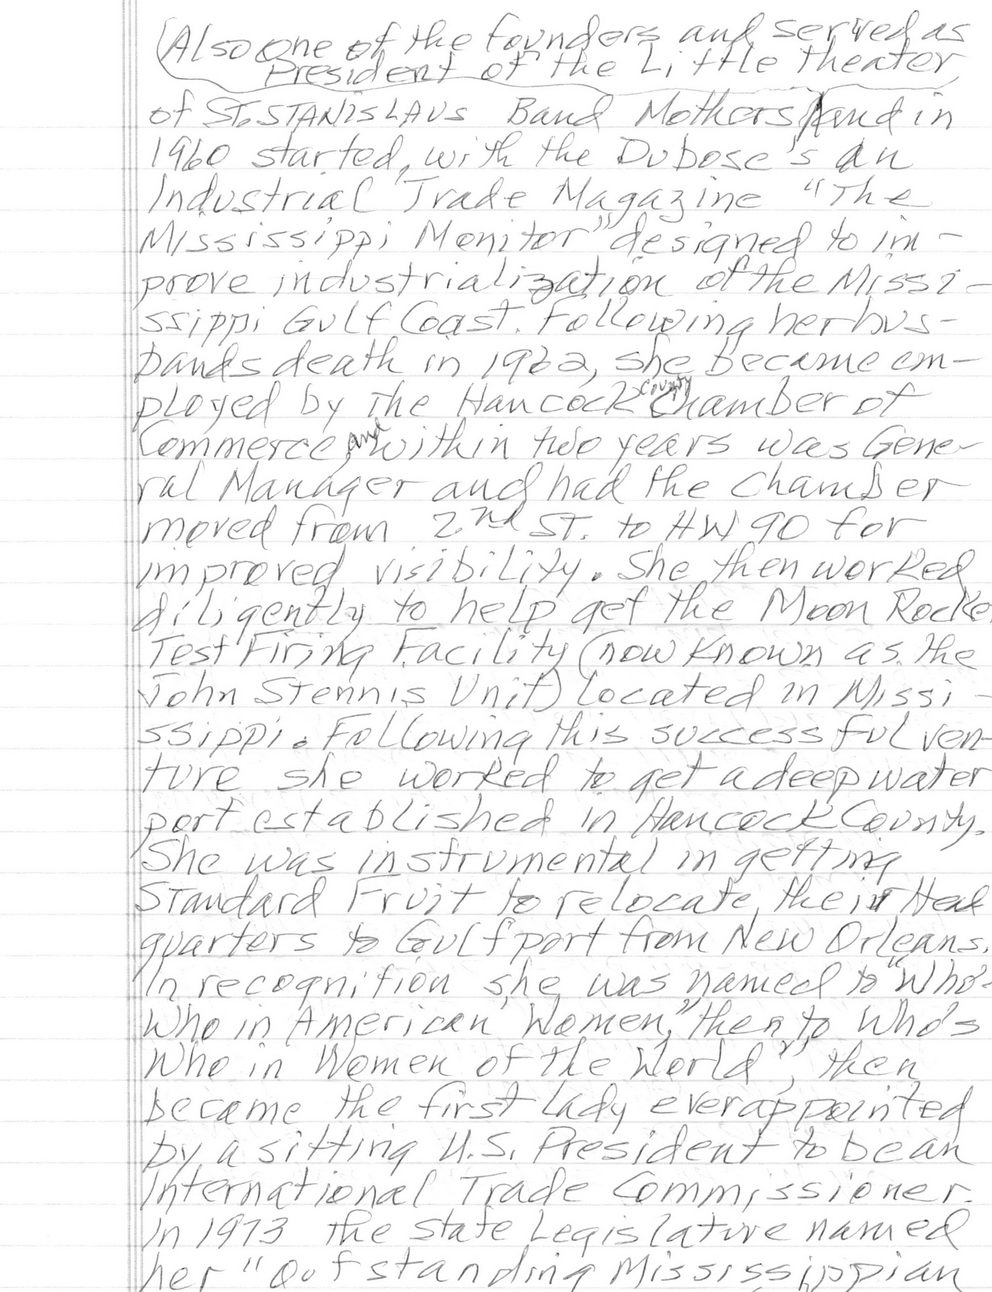 (Also one of the founders and served as
President of the Little Theater,
of St. STANISLAUS Band Mothers, and in
1960 started, with the Dubose's an
Industrial Trade Magazine "The
Mississippi Monitor" designed to im-
prove industrialization of the Missi-
ssippi Gulf Coast. Following her hus-
bands death in 1962, she became em-
ployed by the Hancock County Chamber of
Commerce, and within two years was Gene-
ral Manager and had the Chamber
moved from 2nd ST. to HW 90 for
improved visibility. She then worked
diligently to help get the Moon Rocke
Test Firing Facility (now known as the
John Stennis Unit) located in Missi-
ssippi. Following this successful ven-
ture she worked to get a deep water
port established in Hancock County.
She was instrumental in getting
Standard Fruit to relocate their Head
quarters to Gulfport from New Orleans.
In recognition she was named to "Who's
Who in American Women," then to Who's
Who in Women of the World", then
became the first lady ever appointed
by a sitting U.S. President to be an
International Trade Commissioner.
In 1973 the State Legislature named
her "Outstanding Mississippian